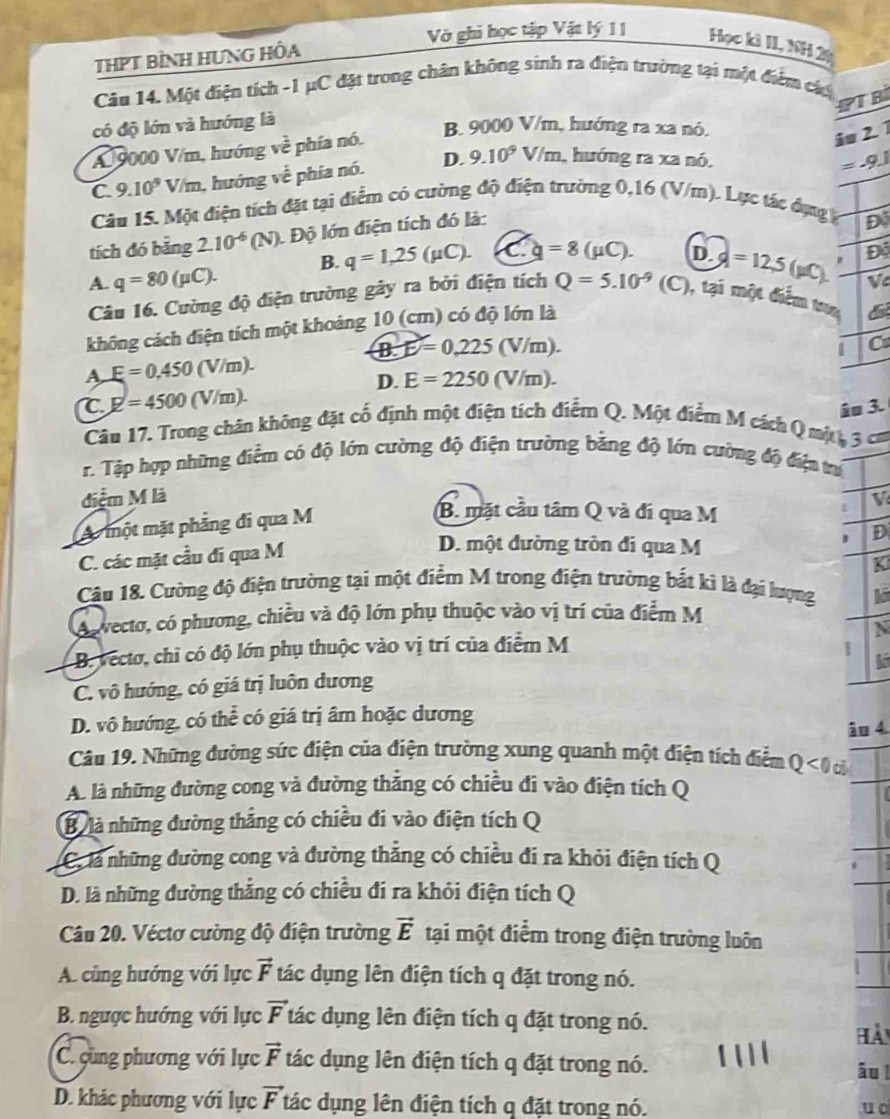 Vở ghi học tập Vật lý 11
Học kì II, NH 20
THPT BÌNH HƯNG HÒA
Câu 14. Một điện tích -1 μC đặt trong chân không sinh ra điện trường tại một điểm cách
có độ lớn và hướng là
A. 9000 V/m, hướng về phía nó. B. 9000 V/m, hướng ra xa nó.
C. 9.10⁹ V/m, hướng về phía nó. D. 9.10⁹ V/m, hướng ra xa nó.
Câu 15. Một điện tích đặt tại điểm có cường độ điện trường 0,16 (V/m). Lực tác dụng
tích đó bằng 2.10⁻⁶ (N). Độ lớn điện tích đó là:
A. q = 80 (μC). B. q = 1,25 (μC). C. q = 8 (μC). D. q = 12,5 (μC).
Câu 16. Cường độ điện trường gây ra bởi điện tích Q = 5.10⁻⁹ (C), tại một điểm
không cách điện tích một khoảng 10 (cm) có độ lớn là
A. E = 0,450 (V/m). B. E = 0,225 (V/m).
C. E = 4500 (V/m). D. E = 2250 (V/m).
Câu 17. Trong chân không đặt cố định một điện tích điểm Q. Một điểm M cách Q một
r. Tập hợp những điểm có độ lớn cường độ điện trường bằng độ lớn cường độ điện
điểm M là
A. một mặt phẳng đi qua M B. mặt cầu tâm Q và đi qua M
C. các mặt cầu đi qua M D. một đường tròn đi qua M
Câu 18. Cường độ điện trường tại một điểm M trong điện trường bất kì là đại lượng
A. vectơ, có phương, chiều và độ lớn phụ thuộc vào vị trí của điểm M
B. vectơ, chỉ có độ lớn phụ thuộc vào vị trí của điểm M
C. vô hướng, có giá trị luôn dương
D. vô hướng, có thể có giá trị âm hoặc dương
Câu 19. Những đường sức điện của điện trường xung quanh một điện tích điểm Q < 0 có
A. là những đường cong và đường thẳng có chiều đi vào điện tích Q
B. là những đường thẳng có chiều đi vào điện tích Q
C. là những đường cong và đường thẳng có chiều đi ra khỏi điện tích Q
D. là những đường thẳng có chiều đi ra khỏi điện tích Q
Câu 20. Véctơ cường độ điện trường E⃗ tại một điểm trong điện trường luôn
A. cùng hướng với lực F⃗ tác dụng lên điện tích q đặt trong nó.
B. ngược hướng với lực F⃗ tác dụng lên điện tích q đặt trong nó.
C. cùng phương với lực F⃗ tác dụng lên điện tích q đặt trong nó.
D. khác phương với lực F⃗ tác dụng lên điện tích q đặt trong nó.